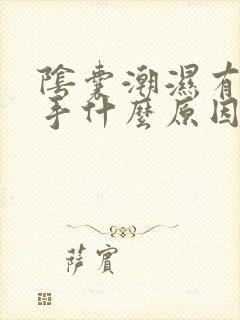 陰囊潮濕有
手什麼原因
薩賓